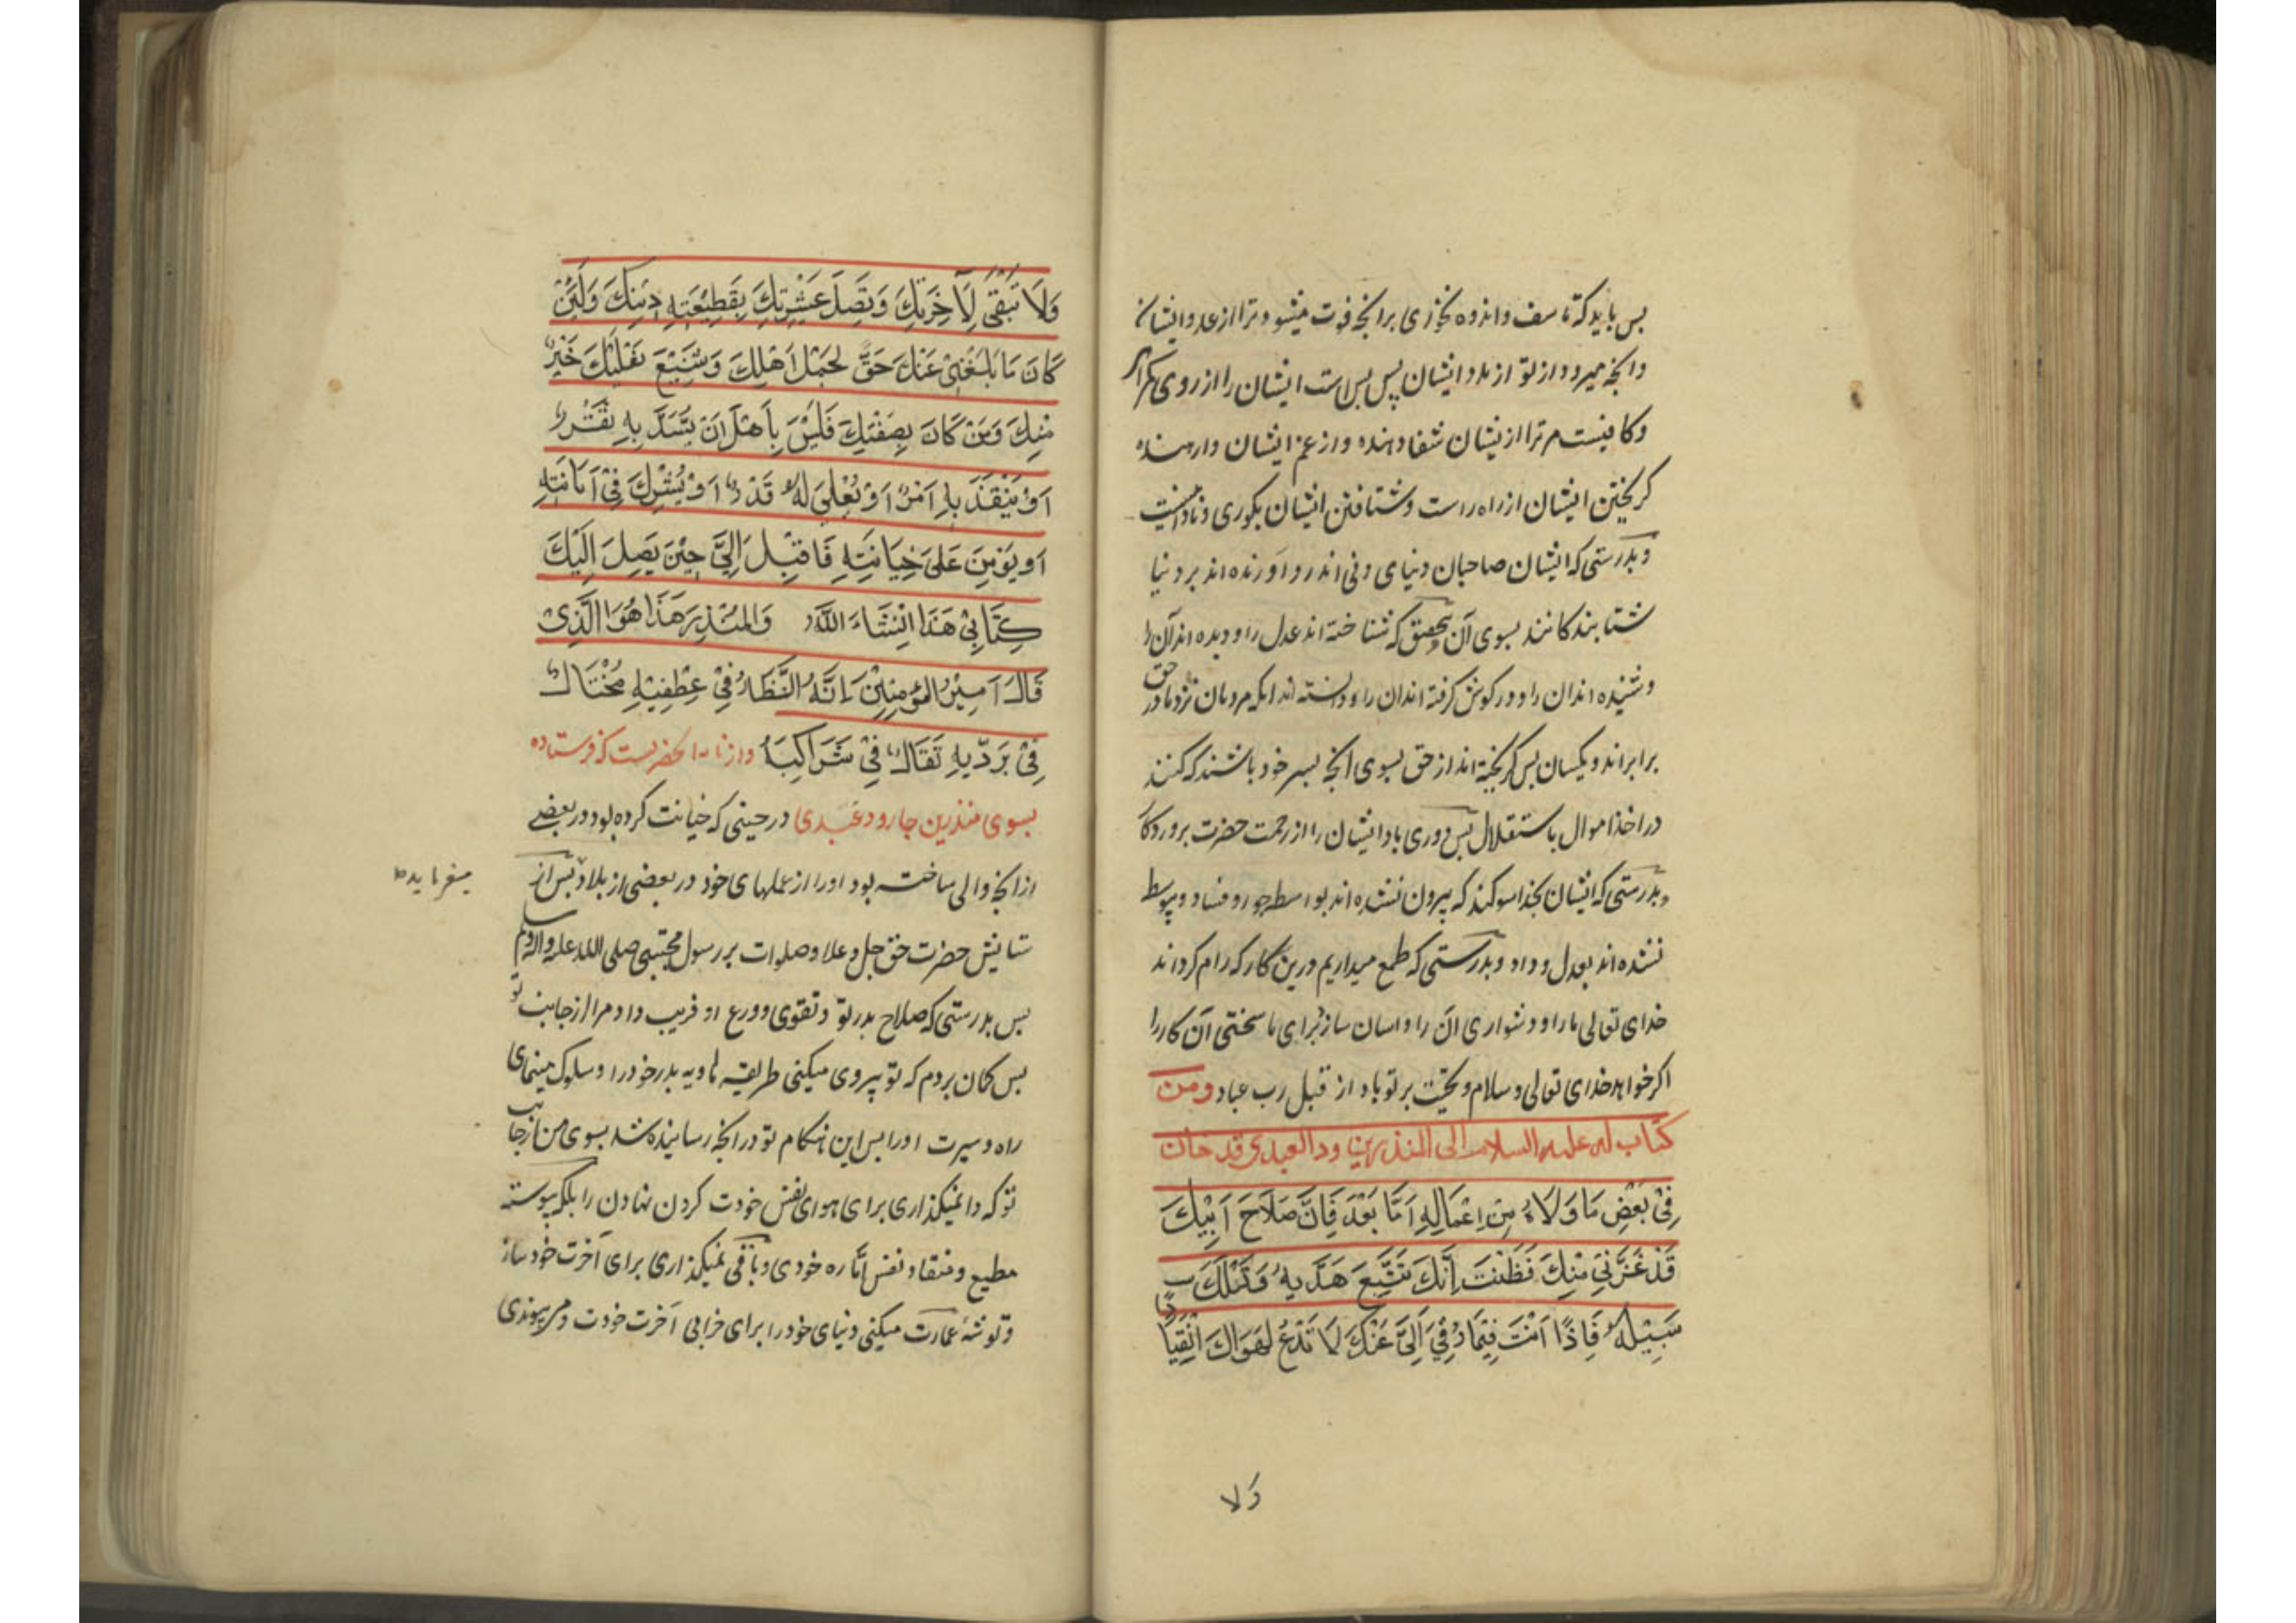 پس باید که تاسف و اندوه نخوری بر آنچه فوت میشود ترا از عدد ایشان
و آنچه میرود از تو از مدد ایشان پس بس است ایشان را از روی گمراهی
و کافیست مر ترا از ایشان شفا دهنده و از غم ایشان وارهنده
کریختن ایشان از راه راست و شتافتن ایشان بکوری و نادانیست
و بدرستی که ایشان صاحبان دنیای دنی اند رو آورنده اند بر دنیا
شتابندکانند بسوی آن بتحقیق که شناخته اند عدل را و دیده اند آن را
و شنیده اند آن را و در کوش کرفته اند آن را و دانسته اند آنکه مردمان نزد ما در حق
برابراند و یکسان پس کریخته اند از حق بسوی آنچه بسر خود باشند که کنند
در اخذ اموال باستقلال پس دوری باد ایشان را از رحمت حضرت پروردکا
و بدرستی که ایشان بخدا سوکند که بیرون نشده اند بواسطه جور و فساد و پیوسط
نشده اند بعدل و داد و بدرستی که طمع میداریم درین کار که رام کرداند
خدای تعالی ما را و دشواری آن را و اسان سازد برای ما سختی آن کار را
اکر خواهد خدای تعالی و سلام و تحیت بر تو باد از قبل رب عباد ومن
کتاب له علیه السلام الی المنذر بن ود العبدی قد خان
فِی بَعْضِ مَا وَلَاهُ مِنْ اِعْمَالِهِ اَمَّا بَعْدَ فَاِنَّ صَلَاحَ اَبِیْكَ
قَدْ غَرَّنِیْ مِنْكَ فَظَنَنْتُ اِنَّكَ تَتَّبِعَ هَدْیَهُ وَتَسْلُكَ
سَبِیْلَهُ فَاِذًا اَنْتَ فِیْمَا رُقِیَ اِلَیَّ عَنْكَ لَا تَدَعُ لِهَوَاكَ انْقِیَادًا
وَلا
وَلَا تَبْقَی لِآخِرَتِكَ وَتَصِلَ عَشِیْرَتِكَ بِقَطِیْعَتِهِ دِیْنِكَ وَلَئِنْ
كَانَ مَا بَلَغَنِیْ عَنْكَ حَقٌّ لَجَمَلُ اَهْلِكَ وَشِسْعَ نَعْلِكَ خَیْرٌ
مِنْكَ وَمَنْ كَانَ بِصِفَتِكَ فَلَیْسَ بِاَهْلِ اَنْ یُسَدَّ بِهِ ثَغْرٌ
اَوْ یَنْفَذَ بِهِ اَمْرٌ اَوْ یُعْلِیَ لَهُ قَدْرٌ اَوْ یُشْرِكَ فِیْ اَمَانَتِهِ
اَو یَؤْمَنَ عَلَی خِیَانَتِهِ فَاقْبِل اِلَیَّ حِیْنَ یَصِلَ اِلَیْكَ
كِتَابِیْ هَذَا اِنْشَاءَ اللّٰهُ وَالمُنْذِرَ هَذَا هُوَ الَّذِیْ
قَالَ اَمِیْرُ الْمُؤْمِنِیْنَ اِنَّهُ النَّظَارُ فِیْ عِطْفَیْهِ مُخْتَالٌ
فِیْ بَرَدّیْهِ تَفَالٌ فِیْ شَرَاكِیَهُ و از نامه آنحضرتست که فرستاده
بسوی منذر بن جارود عبدی در حینی که خیانت کرده بود در بعضی
از آنچه والی ساخته بود او را از عملهای خود در بعضی از بلاد پس از
میفرماید
ستایش حضرت حق جل و علا و صلوات بر رسول مجتبی صلی الله علیه و اله وسلم
پس بدرستی که صلاح پدر تو و تقوی و ورع او فریب داد مرا از جانب تو
پس کمان بردم که تو پیروی میکنی طریقه هادیه پدر خود را و سلوک مینمای
راه و سیرت او را پس این هنکام تو در آنچه رسانیده شد بسوی من از جانب
تو که وا نمیکذاری برای هوای نفس خودت کردن نهادن را بلکه پیوسته
مطیع و منقاد نفس اماره خودی و باقی نمیکذاری برای آخرت خود ساز
و توشه عمارت میکنی دنیای خود را برای خرابی آخرت خودت و می پیوندی